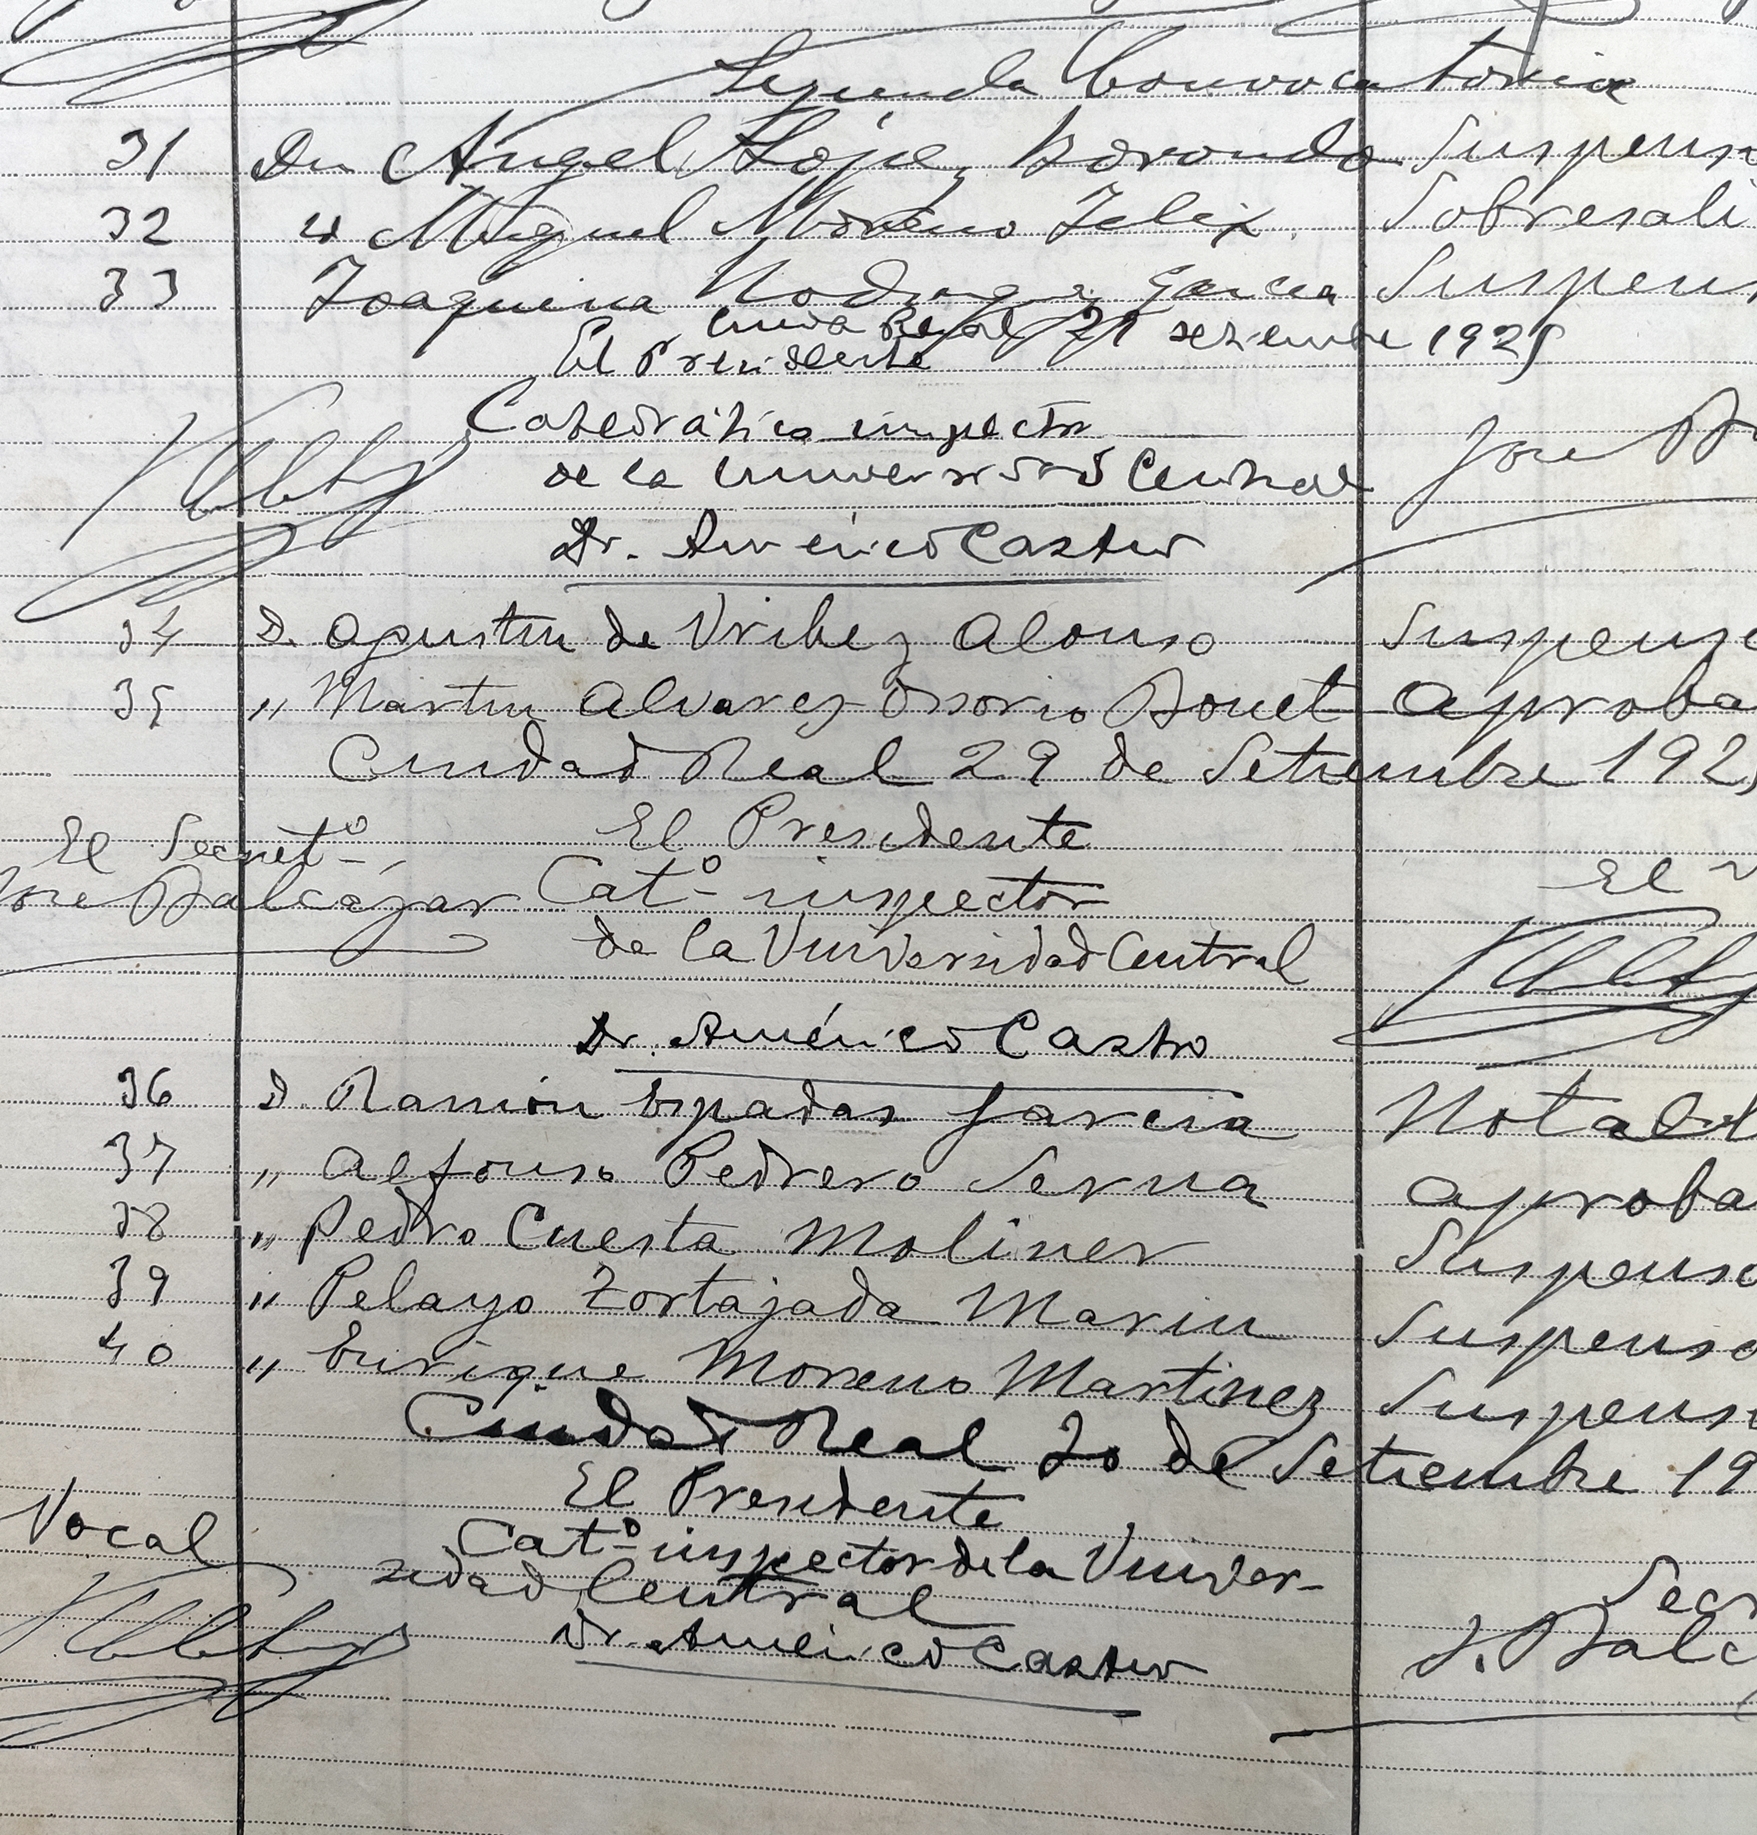 Segunda Convocatoria
31 Dn Angel López Morondo Suspens
32 " Miguel Moreno Felix. Sobresali
33 Joaquina Rodriguez Garcia Suspens
Ciudad Real 21 seziembre 1925
El Presidente
Catedrático inspector
de la Universidad Central
José B
Dr. Américo Castro
34 D. Agustin de Uribe y Alonso Suspenso
35 " Martin Alvarez Ossorio Bonet Aproba
Ciudad Real 29 de Setiembre 192
El Presidente
El Secretº
José Balcázar
Catº inspector
El
de la Universidad Central
Dr. Américo Castro
36 D. Ramón Espadas García Notabl
37 " Alfonso Pedrero Serna Aproba
38 " Pedro Cuesta Moliner Suspenso
39 " Pelayo Tortajada Marin Suspenso
40 " Enrique Moreno Martinez Suspenso
Ciudad Real 30 de Setiembre 19
El Presidente
Vocal
Catº inspector de la Univer-
sidad Central
Secr
Dr. Américo Castro
J. Balc